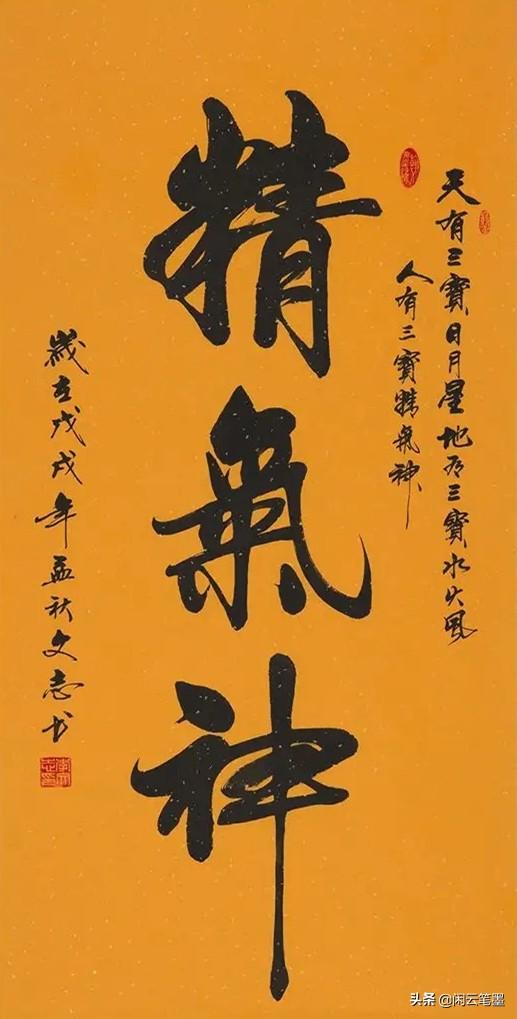 天有三寳日月星地有三寳水火風
人有三寳精氣神
精氣神
歲在戊戌年孟秋文志书
头条 @闲云笔墨